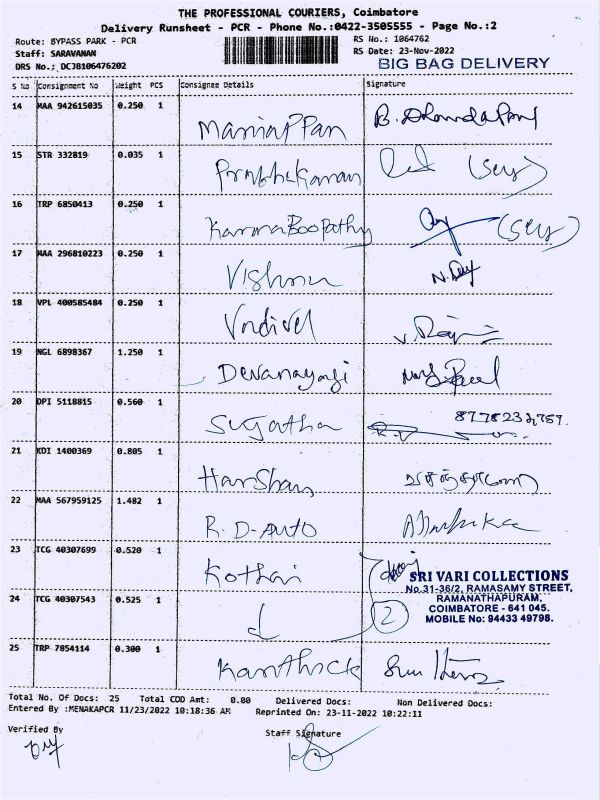 THE PROFESSIONAL COURIERS, Coimbatore
Delivery Runsheet - PCR - Phone No.:0422-3505555 - Page No.:2
Route: BYPASS PARK - PCR RS No.: 1064762
Staff: SARAVANAN RS Date: 23-Nov-2022
DRS No.; DCJ8106476202 BIG BAG DELIVERY
S No Consignment No Weight PCS Consignee Details Signature
14 MAA 942615035 0.250 1 ManiaPPan
15 STR 332819 0.035 1 Prabhakaran
16 TRP 6850413 0.250 1 KannaBoopathy
17 MAA 296810223 0.250 1 Vishnu
18 VPL 400585484 0.250 1 Vadivel
19 NGL 6898367 1.250 1 Devanayagi
20 DPI 5118815 0.560 1 Sugatha
21 KDI 1400369 0.805 1 Harshan
22 MAA 567959125 1.482 1 R.D-Auto
23 TCG 40307699 0.520 1 Kothai
SRI VARI COLLECTIONS
No.31-36/2, RAMASAMY STREET,
RAMANATHAPURAM,
24 TCG 40307543 0.525 1 2 COIMBATORE - 641 045.
MOBILE No: 94433 49798.
25 TRP 7854114 0.300 1 Karthick
Total No. Of Docs: 25 Total COD Amt: 0.00 Delivered Docs: Non Delivered Docs:
Entered By :MENAKAPCR 11/23/2022 10:18:36 AM Reprinted On: 23-11-2022 10:22:11
Verified By Staff Signature